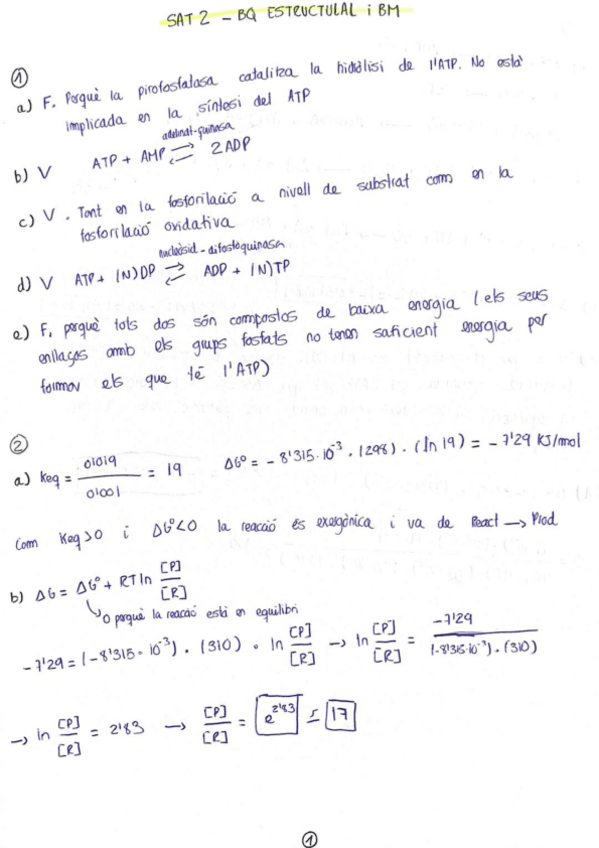 SAT 2 - BQ ESTRUCTURAL i BM
①
a) F. Perquè la pirofosfatasa catalitza la hidròlisi de l'ATP. No està
implicada en la síntesi del ATP
adenilat-quinasa
b) V ATP + AMP ⇌ 2ADP
c) V. Tant en la fosforilació a nivell de substrat com en la
fosforilació oxidativa
nucleòsid-difosfoquinasa
d) V ATP + (N)DP ⇌ ADP + (N)TP
e) F, perquè tots dos són compostos de baixa energia (els seus
enllaços amb els grups fosfats no tenen suficient energia per
formar els que té l'ATP)
②
a) Keq = 0'019 / 0'001 = 19 ΔG° = -8'315·10⁻³ · (298) · (ln 19) = -7'29 KJ/mol
Com Keq>0 i ΔG°<0 la reacció és exergònica i va de React → Prod
b) ΔG = ΔG° + RT ln [P]/[R]
0 perquè la reacció està en equilibri
-7'29 = (-8'315·10⁻³) · (310) · ln [P]/[R] → ln [P]/[R] = -7'29 / (-8'315·10⁻³)·(310)
→ ln [P]/[R] = 2'83 → [P]/[R] = e^2'83 ≤ 17
①